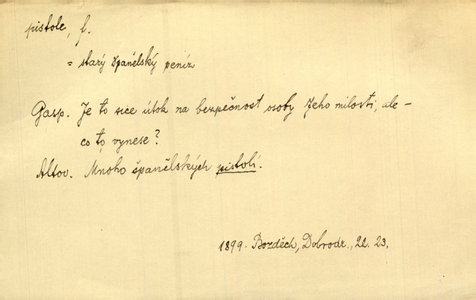 pistole, f.
= starý španělský peníz
Gasp. Je to sice útok na bezpečnost osoby Jeho milosti, ale –
co to vynese?
Altov. Mnoho španělských pistolí.
1899. Bozděch, Dobrodr., 22. 23.